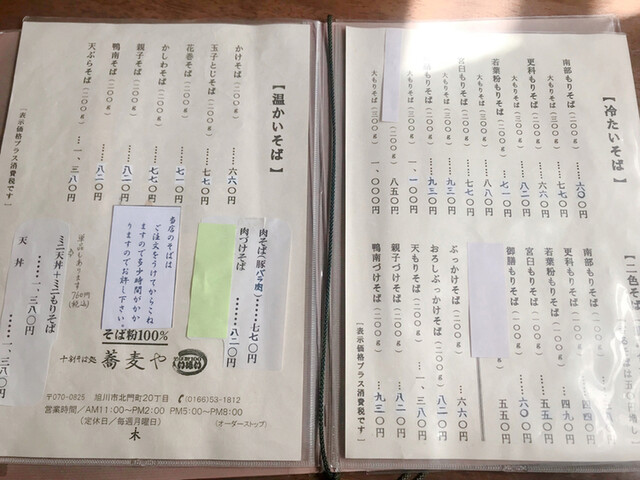 【冷たいそば】
南部もりそば(二〇〇g)……六〇〇円
大もりそば(三〇〇g)……七二〇円
更科もりそば(二〇〇g)……六六〇円
大もりそば(三〇〇g)
若葉粉もりそば(二〇〇g)……七一〇円
大もりそば(三〇〇g)……八八〇円
宮臼もりそば(二〇〇g)……七七〇円
大もりそば(三〇〇g)……九三〇円
もりそば(二〇〇g)
大もりそば(三〇〇g)……一、〇〇〇円
【二色そば】
南部もりそば
更科もりそば……四四〇円
若葉粉もりそば……四九〇円
宮臼もりそば……五五〇円
御膳もりそば……六〇〇円
ぶっかけそば……六六〇円
おろしぶっかけそば……八二〇円
天もりそば……一、三八〇円
親子づけそば……八二〇円
鴨南づけそば……九三〇円
【表示価格プラス消費税です】
【温かいそば】
かけそば(二〇〇g)……六六〇円
玉子とじそば(二〇〇g)……七七〇円
花巻そば(二〇〇g)……七七〇円
かしわそば(二〇〇g)……七七〇円
親子そば(二〇〇g)……八二〇円
鴨南そば(二〇〇g)……八二〇円
天ぷらそば(二〇〇g)……一、三八〇円
【表示価格プラス消費税です】
肉そば(豚バラ肉)……七七〇円
肉づけそば……八二〇円
当店のそばは
ご注文をうけてからこね
ますので多少時間がかか
りますのでお許し下さい。
単品もあります
760円
(税込)
ミニ天丼+ミニもりそば
……一、三八〇円
天丼……一、三八〇円
そば粉100%
十割そば処 蕎麦や
〒070-0825 旭川市北門町20丁目 (0166)53-1812
営業時間/AM11:00〜PM2:00 PM5:00〜PM8:00
(定休日/毎週月曜日) (オーダーストップ)
木